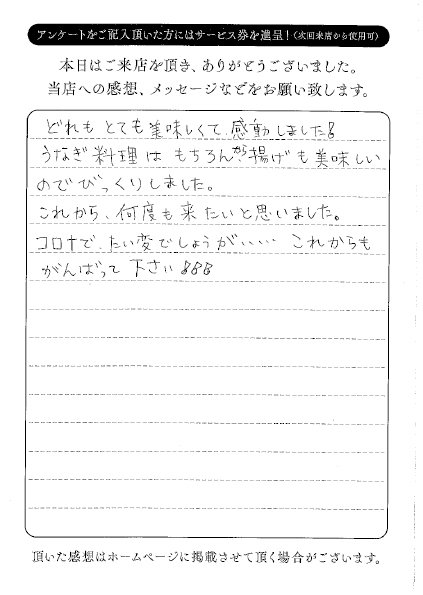 アンケートをご記入頂いた方にはサービス券を進呈！（次回来店から使用可）
本日はご来店を頂き、ありがとうございました。
当店への感想、メッセージなどをお願い致します。
どれもとても美味しくて感動しました!
うなぎ料理はもちろん、から揚げも美味しい
のでびっくりしました。
これから、何度も来たいと思いました。
コロナで、たい変でしょうが‥‥ これからも
がんばって下さい!!!
頂いた感想はホームページに掲載させて頂く場合がございます。